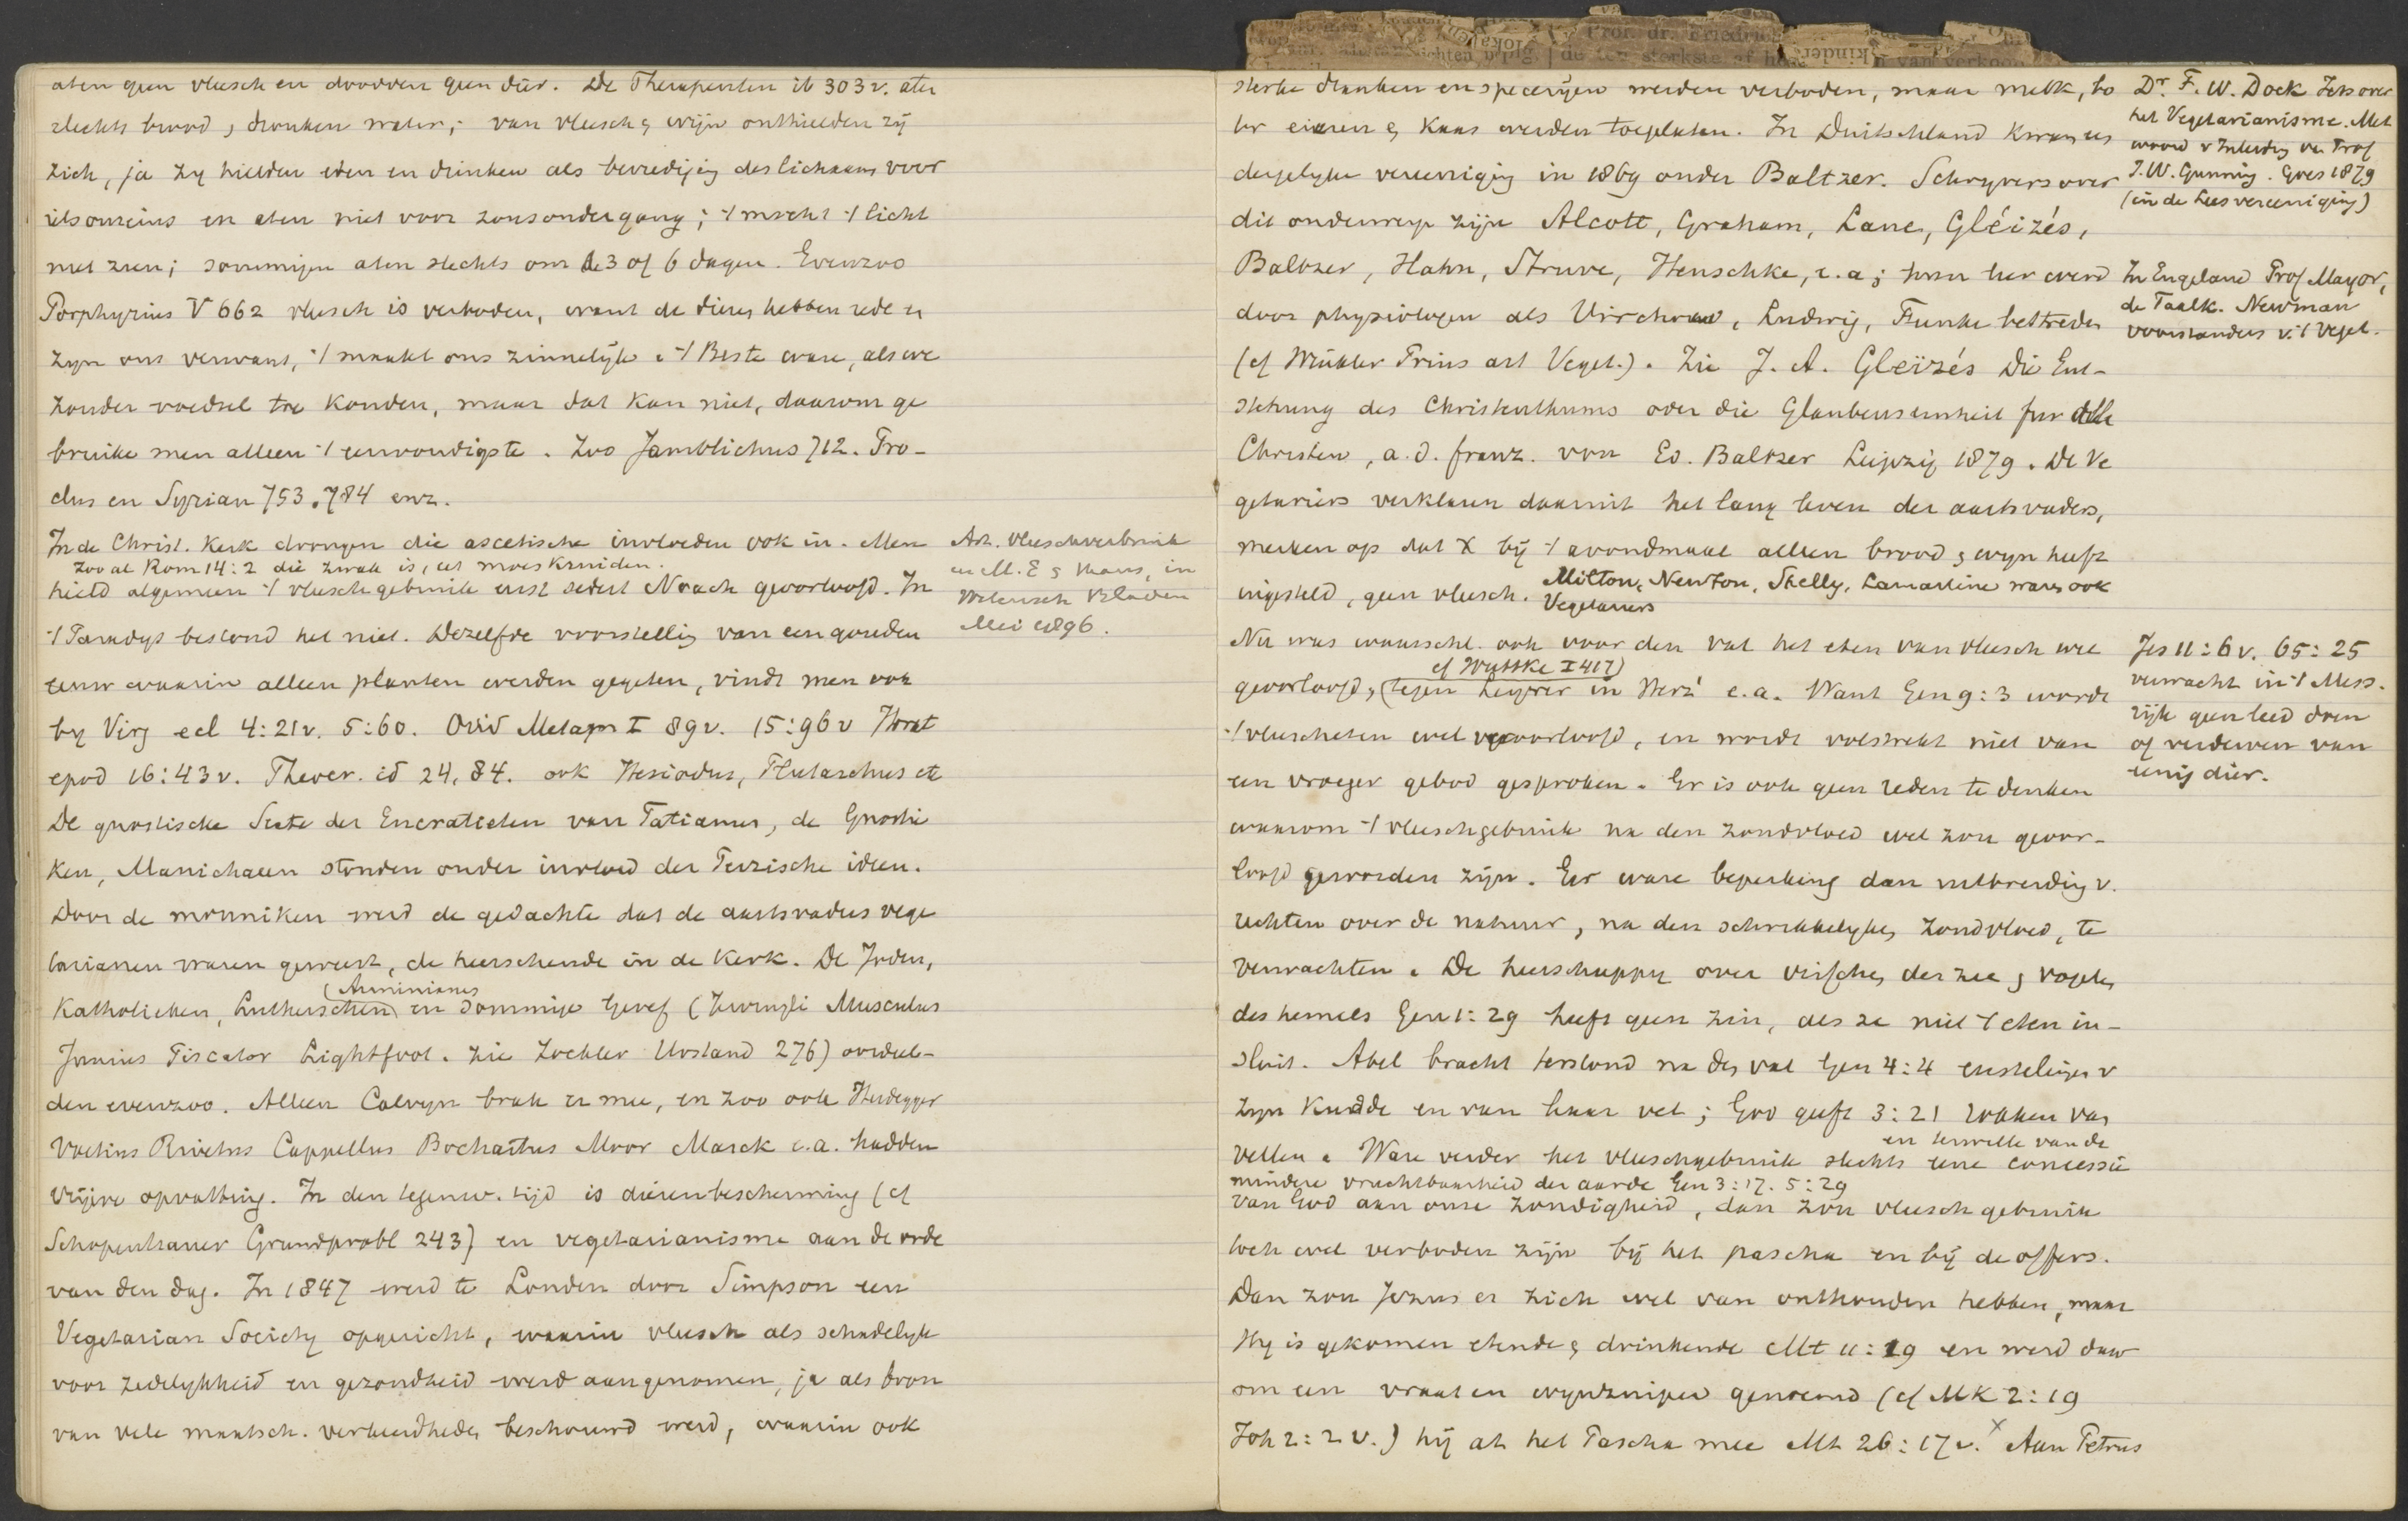 aten geen vleesch en doodden geen dier. De Therapeuten ib 303 v. aten
slechts brood, dronken water; van vleesch & wijn onthielden zij
zich, ja zy hielden eten en drinken als bevrediging des lichaams voor
iets onreins en aten niet voor zonsondergang; 't mocht 't licht
niet zien; sommigen aten slechts om de 3 of 6 dagen. Evenzoo
Porphyrius V 662 vleesch is verboden, want de dieren hebben rede en
zyn ons verwant, 't maakt ons zinnelijk. 't Beste ware, als we
zonder voedsel toe konden, maar dat kan niet, daarom ge
bruike men alleen 't eenvoudigste. Zoo Jamblichus 712. Pro-
clus en Syrian 753. 784 enz.
In de Christ. Kerk drongen die ascetische invloeden ook in. Men
zooal Rom 14:2 die zwak is, eet moeskruiden.
hield algemeen 't vleeschgebruik eerst sedert Noach geoorloofd. In
't Paradys bestond het niet. Dezelfde voorstellig van een gouden
eeuw waarin alleen planten werden gegeten, vindt men ook
by Virg ecl 4:21v. 5:60. Ovid Metam I 89v. 15:96v Horat
epod 16:43v. Theocr. id 24,84. ook Hesiodus, Plutarchus etc
De gnostische Secte der Encratieten van Tatianus, de Gnosti
ken, Manichaeen stonden onder invloed der Perzische ideen.
Door de monniken werd de gedachte dat de aartsvaders vege
tarianen waren geweest, de heerschende in de Kerk. De Joden,
(Arminianes
Katholieken, Lutherschen en sommige Geref (Zwingli Musculus
Junius Piscator Lightfoot. zie Zockler Urstand 276) oordeel-
den evenzoo. Alleen Calvyn brak er mee, en zoo ook Heidegger
Voetius Rivetus Cappellus Bochartus Moor Marck e.a. hadden
vrijere opvatting. In den tegenw. tijd is dierenbescherming (cf
Schopenhauer Grundprobl 243) en vegetarianisme aan de orde
van den dag. In 1847 werd te Londen door Simpson een
Vegetarian Society opgericht, waarin vleesch als schadelyk
voor zedelykheid en gezondheid werd aangenomen, ja als bron
van vele maatsch. verkeerdheden beschouwd werd, waarin ook
Art. Vleeschverbruik
en M. E &, in
Wetensch Bladen
Mei 1896.
sterke dranken en specerijen werden verboden, maar melk, bo
ter eieren & Kaas werden toegelaten. In Duitschland kwam een
dergelyke vereeniging in 1869 onder Baltzer. Schryvers over
dit onderwerp zijn Alcott, Graham, Lane, Gléizés,
Baltzer, Hahn, Struve, Henschke, e.a; hun leer werd
door physiologen als Virchow, Ludwig, Funke bestreden
(cf Winkler Prins art Veget.). Zie J. A. Gleïzés Die Ent-
stehung des Christenthums oder die Glaubenseinheit fur alle
Christen, a.d. franz. von Ed. Baltzer Leipzig 1879. De Ve
getariers verklaren daaruit het lang leven der aartsvaders,
merken op dat X bij 't avondmaal alleen brood & wyn heeft
ingesteld, geen vleesch. Milton, Newton, Shelly, Lamartine waren ook
Vegetariers
Nu was waarschl. ook voor den val het eten van vleesch wel
cf Wuttke I 417)
geoorloofd, (tegen Leyrer in Herz' e.a. Want Gen 9:3 wordt
't vleescheten wel veroorloofd, en wordt volstrekt niet van
een vroeger gebod gesproken. Er is ook geen reden te denken
waarom 't vleeschgebruik na den zondvloed wel zou geoor-
loofd geworden zijn. Eer ware beperking dan uitbreiding v.
rechten over de natuur, na den schrikkelyken zondvloed, te
verwachten. De heerschappy over visschen der zee & vogelen
des hemels Gen 1:29 heeft geen zin, als ze niet 't eten in-
sluit. Abel bracht terstond na den val Gen 4:4 eerstelingen v
zyn Kudde en van haar vet; God geeft 3:21 rokken van
vellen. Ware verder het vleeschgebruik slechts eene concessie
en terwille van de
mindere vruchtbaarheid der aarde Gen 3:17. 5:29
van God aan onze zondigheid, dan zou vleeschgebruik
toch wel verboden zijn bij het pascha en bij de offers.
Dan zou Jezus er zich wel van onthouden hebben, maar
Hy is gekomen etende & drinkende Mt 11:19 en werd daar
om een vraat en wynzuiper genoemd (cf MK 2:19
Joh 2:2v.) hij at het Pascha mee Mt 26:17v. x Aan Petrus
Dr. F. W. Dock Iets over
het Vegetarianisme. Met
woord v Inleidg van Prof
J. W. Gunning. Goes 1879
(in de Leesvereeniging)
In Engeland Prof Mayor,
de Taalk. Newman
voorstanders v. 't Veget.
Jes 11:6v. 65:25
verwacht in 't Mess.
rijk geen leed doen
of verderven van
eenig dier.